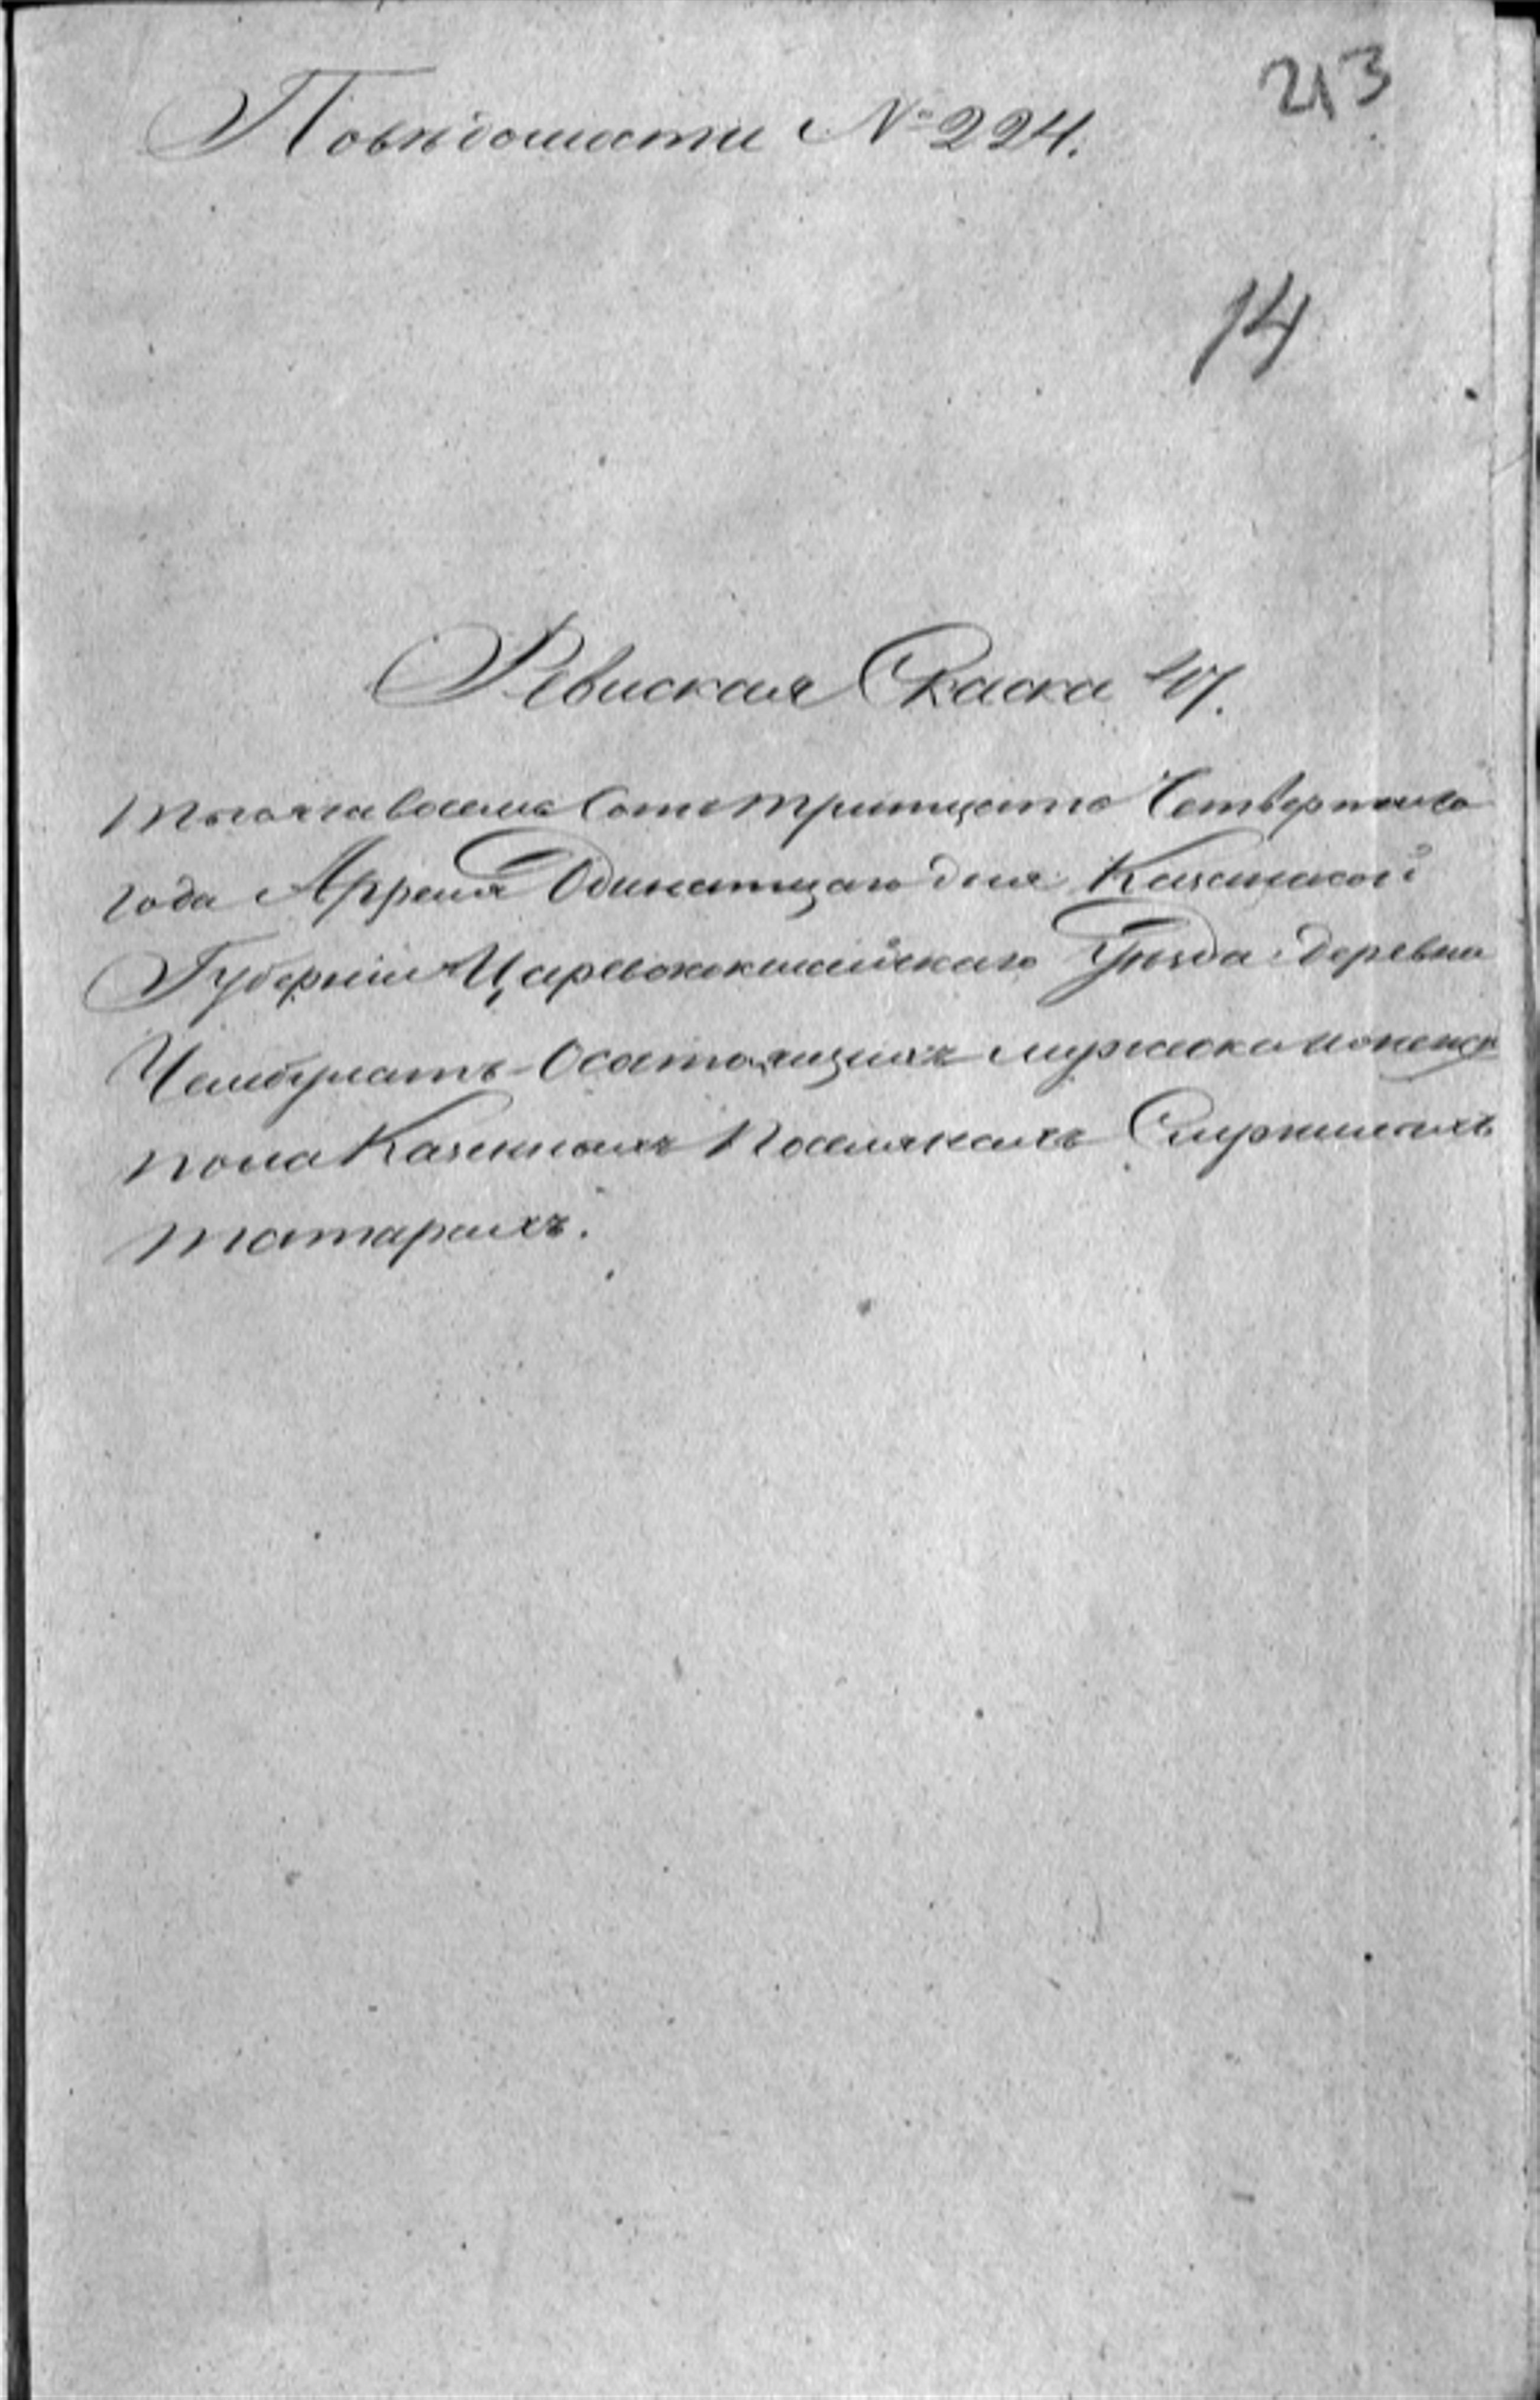 213
Поведомости № 224.
14
Ревиская Скаска 47.
Тысяча восемь Сот тритцать Четвертаго
года Апреля Одинатцаго дня Казанской
Губернии Царевококшайскаго Уезда деревни
Чембулатъ Осостоящихъ мужеска и женска
пола Казенныхъ Поселянахъ Служилыхъ
татарахъ.